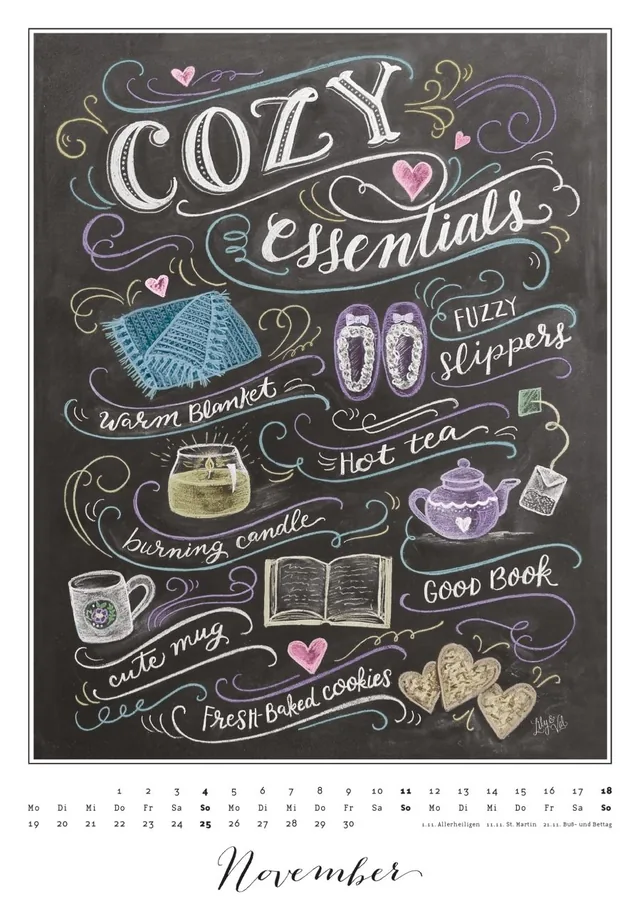 COZY
essentials
FUZZY
slippers
Warm Blanket
Hot tea
burning candle
GOOD BOOK
cute mug
FRESH-Baked cookies
Lily & Val
1 2 3 4 5 6 7 8 9 10 11 12 13 14 15 16 17 18
Mo Di Mi Do Fr Sa So Mo Di Mi Do Fr Sa So Mo Di Mi Do Fr Sa So
19 20 21 22 23 24 25 26 27 28 29 30
1.11. Allerheiligen 11.11. St. Martin 21.11. Buß- und Bettag
November